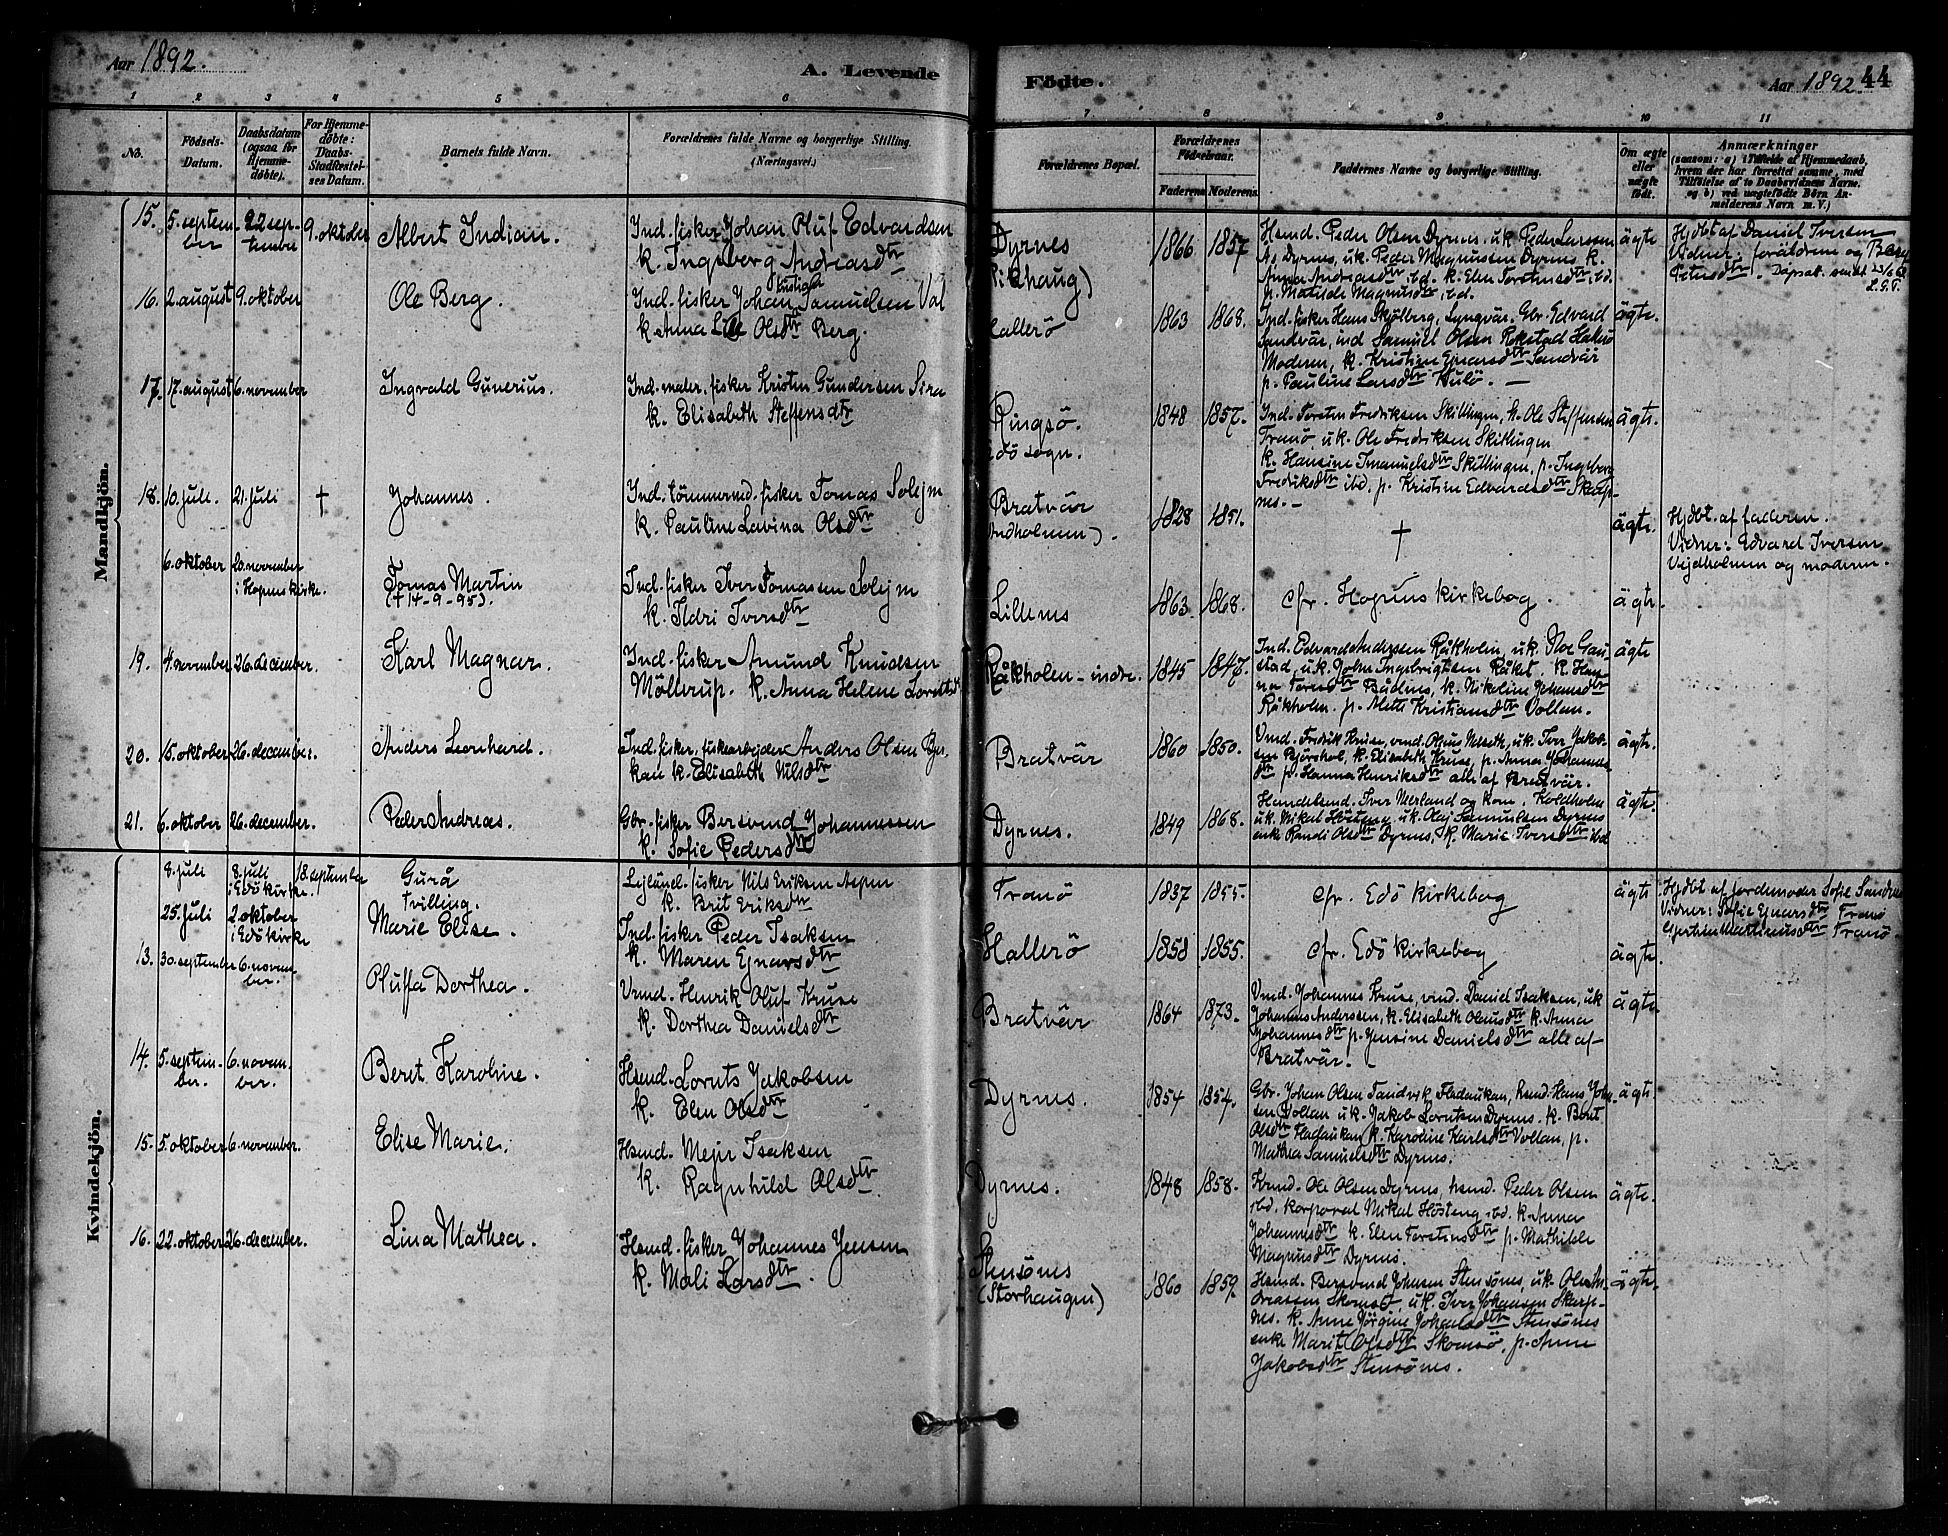 Aar 1892.
A. Levende
Födte.
Aar 1892
44
1 2 3 4 5 6
7 8 9 10 11
No.
Födsels-Datum.
Daabsdatum (ogsaa for Hjemme-döbte).
For Hjemme-döbte: Daabs-Stadfæstel-ses Datum.
Barnets fulde Navn.
Forældrenes fulde Navne og borgerlige Stilling. (Næringsvei.)
Forældrenes Bopæl.
Forældrenes Födselsaar.
Faderens Moderens
Faddernes Navne og borgerlige Stilling.
Om ægte eller uægte födt.
Anmærkninger
(saasom: a) i Tilfælde af Hjemmedaab, hvem der har forrettet samme, med Tilföielse af to Daabsvidners Navne, og b) ved uægtefödte Börn An-melderens Navn m. V.)
Mandkjön.
15. 5. septem-ber 22 sep-tember 9. oktober Albert Indian.
Ind. fisker Johan Oluf Edvardsen
k. Ingeborg Andreasdtr
Dyrnes
1866 1857
Hsmd. Peder Olsen Dyrnes, uk. Peder Larssen
Dyrnes, uk. Peder Magnussen Dyrnes k.
Anna Andreasdtr ibd. k. Elen Torstensdtr, ibd.
p. Matilde Magnusdtr, ibd.
ägte
Hjdbt af Daniel Iversen
Vidner: foräldrene og
Petersdtr.
16. 2. august 9. oktober Ole Berg.
Ind. fisker Johan Samuelsen
k. Anna Olsdtr Berg.
Hallerö
1863 1868.
Ind. fisker Hans Skjölberg, Lyngvär, Gbr. Edvard
Sandvär, ind Samuel Olsen Rokstad
Moderen, k. Kristine Ejnarsdtr Sandvär
p. Pauline Larsdtr
ägte.
17. 17. august 6. november Ingvald Gunerius.
Ind. maler, fisker Kristen Gundersen
k. Elisabeth Steffensdtr
Ringsö.
Edö sogn.
1848 1857.
Ind. Torsten Fredriksen Skillingen, k. Ole Steffensen
Tranö uk. Ole Fredriksen Skillingen
k. Hansine Imanuelsdtr Skillingen, p. Ingeborg
Fredriksdtr ibd, p. Kristine Edvardsdtr Skarp-
nes. -
ägte.
18. 10. juli. 21. juli † Johannes.
Ind. tömmermd. fisker Tomas Solejm
k. Pauline Lavina Olsdtr
Bratvär
1828 1851.
†
ägte.
Hjdbt. af faderen.
Vidner: Edvard Iversen
Vejdholmen og moderen.
6. oktober 20. november
i Hopens kirke.
Tomas Martin
(† 14-9-95).
Ind. fisker Iver Tomassen Solejm
k. Ildri Iversdtr
Lillenes
1863. 1868.
cfr. Hopens kirkebog.
ägte.
19. 4. november 26. december. Karl Magnar.
Ind. fisker Amund Knudsen
Möllerup. k. Anna Helene
Råkholen - indre.
1845 1847.
Ind. Edvard Anderssen Råkholm, uk. Gau-
stad, uk. John Ingebrigtsen Råket, k.
Bådnes, k. Nikoline Johansdtr
Råkholm. p. Mette Kristiansdtr Vollan.
ägte
20. 15. oktober 26. december. Anders Leonhard.
Ind. fisker, fiskearbejder Anders Olsen
k. Elisabeth Nilsdtr
Bratvär
1860 1850.
Vmd. Fredrik Kruse, vmd. uk. Iver Jakob-
sen k. Elisabeth Kruse, p. Anna Johannes-
dtr p. Hanna Henriksdtr alle af Bratvär.
ägte.
21. 6. oktober 26. december. Peder Andreas.
Gbr. fisker Bersvend Johannessen
k. Sofie Pedersdtr
Dyrnes.
1849 1868.
Handelsmd. Iver og kone, Koldholm
uk. Mikal Hösteng uk. Olaj Samuelsen Dyrnes
enke Randi Olsdtr Dyrnes, k. Marie Iversdtr ibd
ägte.
Kvindekjön.
8. juli 8. juli i Edö kirke. 18. september Gurå
Tvilling.
Lejländ. fisker Nils Eriksen Aspen
k. Brit Eriksdtr
Tranö
1837 1855.
cfr. Edö kirkebog
ägte
Hjdbt af jordemoder Sofie
Vidner: Sofie Ejnarsdtr Tranö
Martinusdtr Tranö.
25. juli 2. oktober i Edö kirke Marie Elise.
Ind. fisker Peder Isaksen
k. Maren Ejnarsdtr
Hallerö
1858 1855.
cfr. Edö kirkebog
ägte.
13. 30. september 6. novem-ber. Oluffa Dorthea.
Vmd. Henrik Oluf Kruse
k. Dorthea Danielsdtr
Bratvär
1864 1873.
Vmd. Johannes Kruse, vmd. Daniel Isaksen, uk
Johannes Anderssen, k. Elisabeth Olausdtr k. Anna
Johannesdtr p. Jensine Danielsdtr alle af
Bratvär.
ägte.
14. 5. septem-ber. 6. novem-ber. Beret Karoline.
Hsmd. Lornts Jakobsen
k. Elen Olsdtr
Dyrnes.
1854 1854.
Gbr. Johan Olsen Sandvik, Fladaukan, hsmd. Hans John-
sen Vollan uk. Jakob Lorntsen Dyrnes. k. Beret
Olsdtr Fladaukan k. Karoline Karlsdtr Vollan, p.
Mathea Samuelsdtr Dyrnes.
ägte.
15. 5. oktober 6. november. Elise Marie.
Hsmd. Mejer Isaksen
k. Ragnhild Olsdtr.
Dyrnes.
1848 1858.
Hsmd. Ole Olsen Dyrnes, hsmd. Peder Olsen
ibd. korporal Mikal Hösteng ibd. k. Anna
Johannesdtr k. Elen Torstensdtr p. Mathilde
Magnusdtr Dyrnes.
ägte.
16. 22. oktober 26. december. Lina Mathea.
Hsmd. fisker Johannes Jensen
k. Mali Larsdtr.
Stensönes
(Storhaugen)
1860 1859.
Hsmd. Bersvend Johnsen Stensönes, uk. Ole An-
dreassen Skomsö, uk. Iver Johansen Skarp-
nes. k. Anne Jörgine Johansdtr Stensönes
enke Marit Olsdtr Skomsö, p. Anne
Jakobsdtr Stensönes.
ägte.